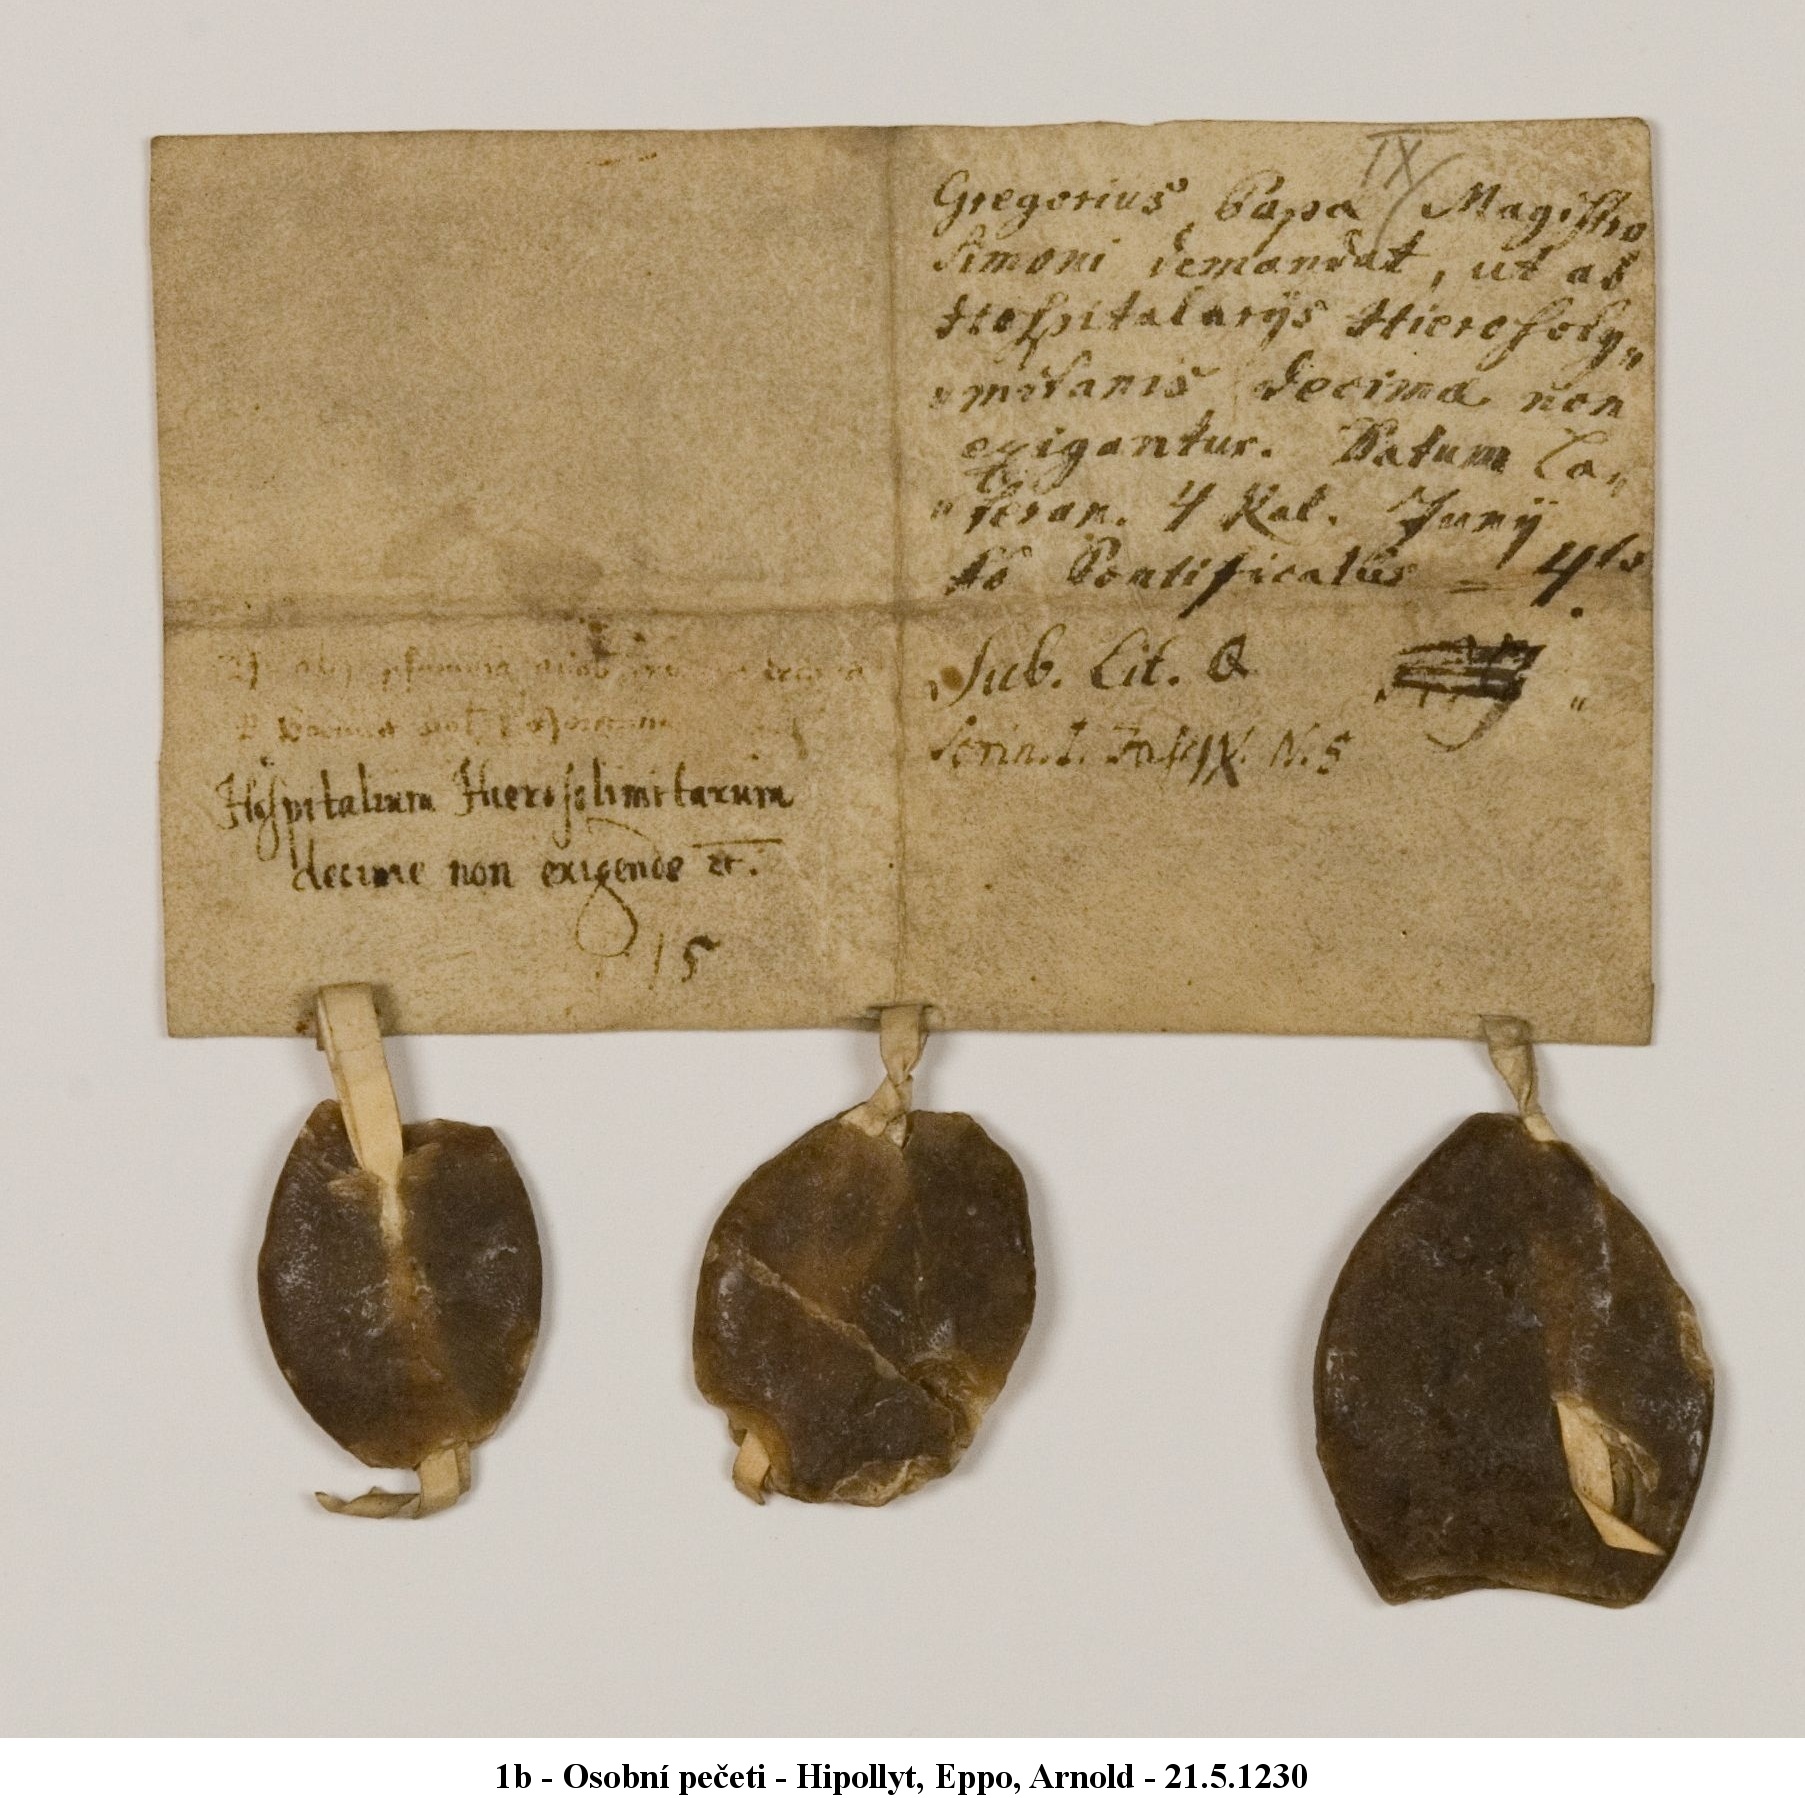 IX
Gregorius Papa Magistro
Simoni demandat, ut ab
Hospitalarijs Hierosoly„
„mitanis decima non
exigantur. Datum La„
„teran. 4 Kal. Junÿ
Pontificatus = 4to
Sub. Lit. Q
Scrin. I. Fas. IX. N. 5
Hospitalium Hierosolimitarum
decime non exigende etc.
15
1b - Osobní pečeti - Hipollyt, Eppo, Arnold - 21.5.1230